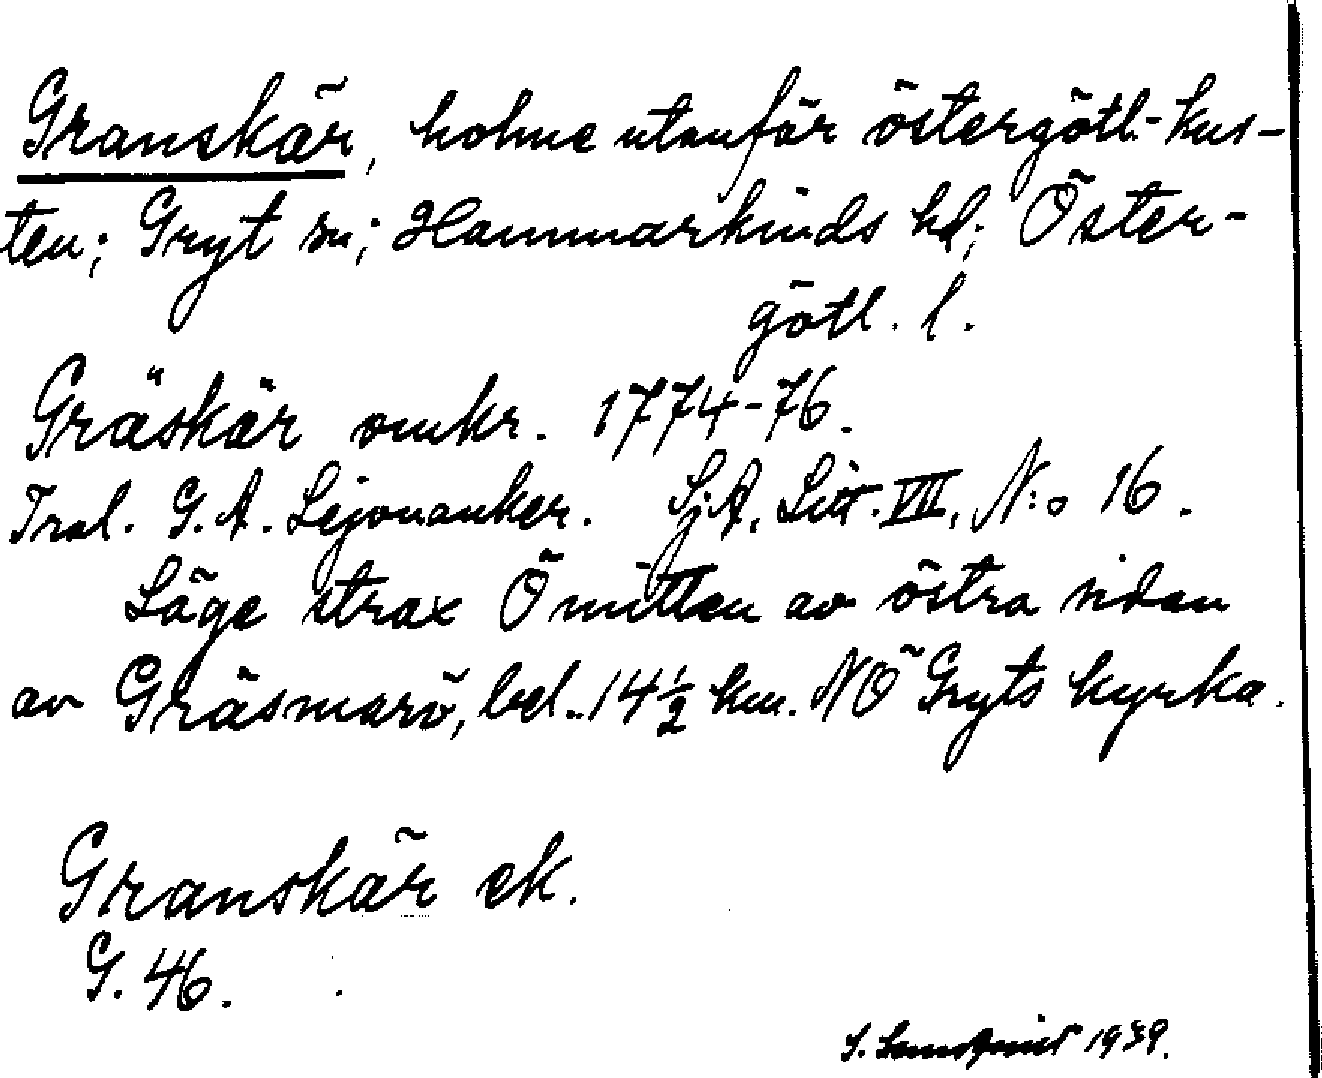 Granskär, holme utanför östergötl.-kus-
ten; Gryt sn; Hammarkinds hd; Öster-
götl. l.
Gräskär omkr. 1774-76.
Tral. G. A. Lejonanker. Sj.A. Litt. VII, N:o 16.
Läge strax Ö mitten av östra sidan
av Gräsmarö, bel. 14½ km. NÖ Gryts kyrka.
Granskär ek.
G. 46.
S. 1939.